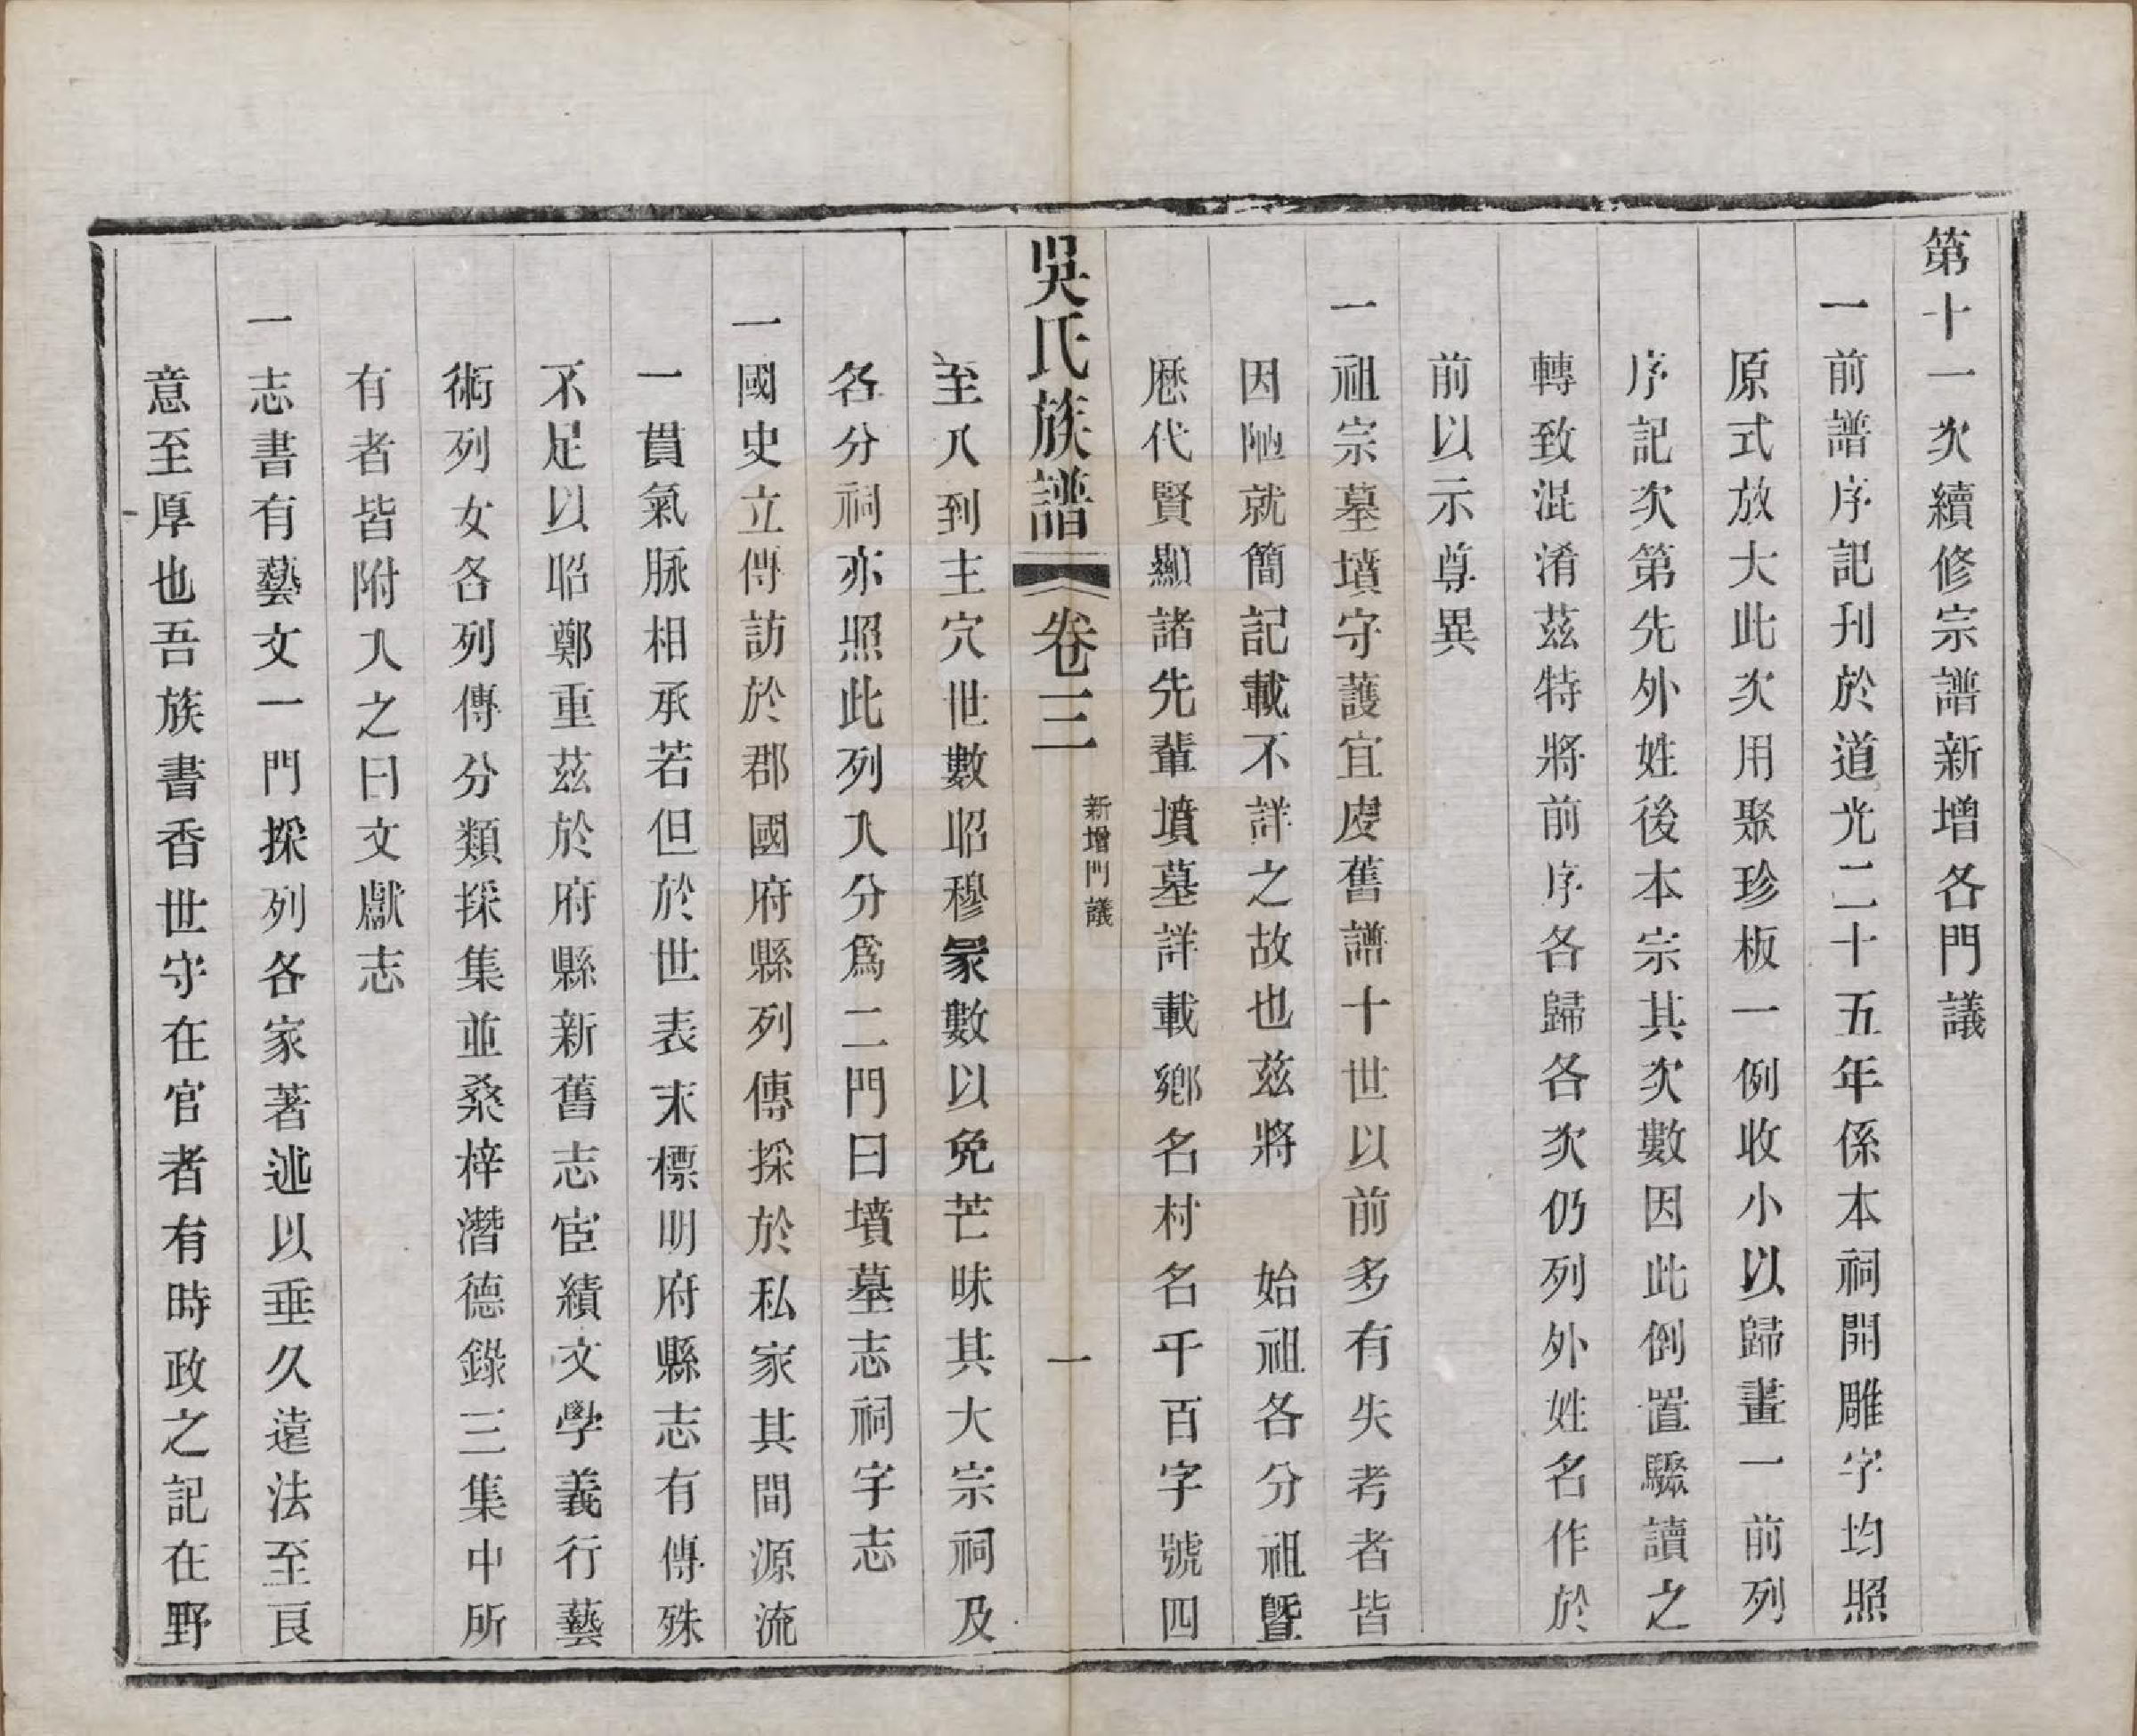 第十一次續修宗譜新增各門議
一前譜序記刊於道光二十五年係本祠開雕字均照
原式放大此次用聚珍板一例收小以歸畫一前列
序記次第先外姓後本宗其次數因此倒置驟讀之
轉致混淆茲特將前序各歸各次仍列外姓名作於
前以示尊異
一祖宗墓墳守護宜虔舊譜十世以前多有失考者皆
因陋就簡記載不詳之故也茲將　始祖各分祖曁
歷代賢顯諸先輩墳墓詳載鄉名村名千百字號四
吳氏族譜　卷三　新增門議　一
至八到主穴世數昭穆冡數以免芒昧其大宗祠及
各分祠亦照此列入分爲二門曰墳墓志祠宇志
一國史立傳訪於郡國府縣列傳採於私家其間源流
一貫氣脉相承若但於世表末標明府縣志有傳殊
不足以昭鄭重茲於府縣新舊志宦績文學義行藝
術列女各列傳分類採集並桑梓潛德錄三集中所
有者皆附入之曰文獻志
一志書有藝文一門採列各家著述以垂久遠法至良
意至厚也吾族書香世守在官者有時政之記在野